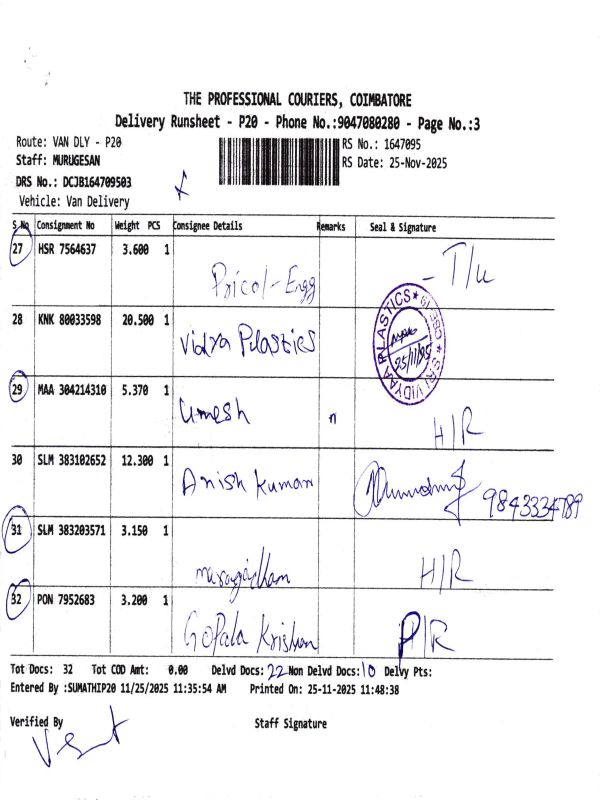 THE PROFESSIONAL COURIERS, COIMBATORE
Delivery Runsheet - P20 - Phone No.:9047080280 - Page No.:3
Route: VAN DLY - P20
RS No.: 1647095
Staff: MURUGESAN
RS Date: 25-Nov-2025
DRS No.: DCJB164709503
Vehicle: Van Delivery
S.No Consignment No Weight PCS Consignee Details Remarks Seal & Signature
27 HSR 7564637 3.600 1 Pricol-Engg - T/u
28 KNK 80033598 20.500 1 Vidya Plastics
SRI VIDYAA PLASTICS ★ CBE-19 ★
25/11/25
29 MAA 304214310 5.370 1 Umesh n H/R
30 SLM 383102652 12.300 1 Anish Kumar 9843334789
31 SLM 383203571 3.150 1 H/R
32 PON 7952683 3.200 1 Gopala Krishnan P/R
Tot Docs: 32 Tot COD Amt: 0.00 Delvd Docs: 22 Non Delvd Docs: 10 Delvy Pts:
Entered By :SUMATHIP20 11/25/2025 11:35:54 AM Printed On: 25-11-2025 11:48:38
Verified By Staff Signature